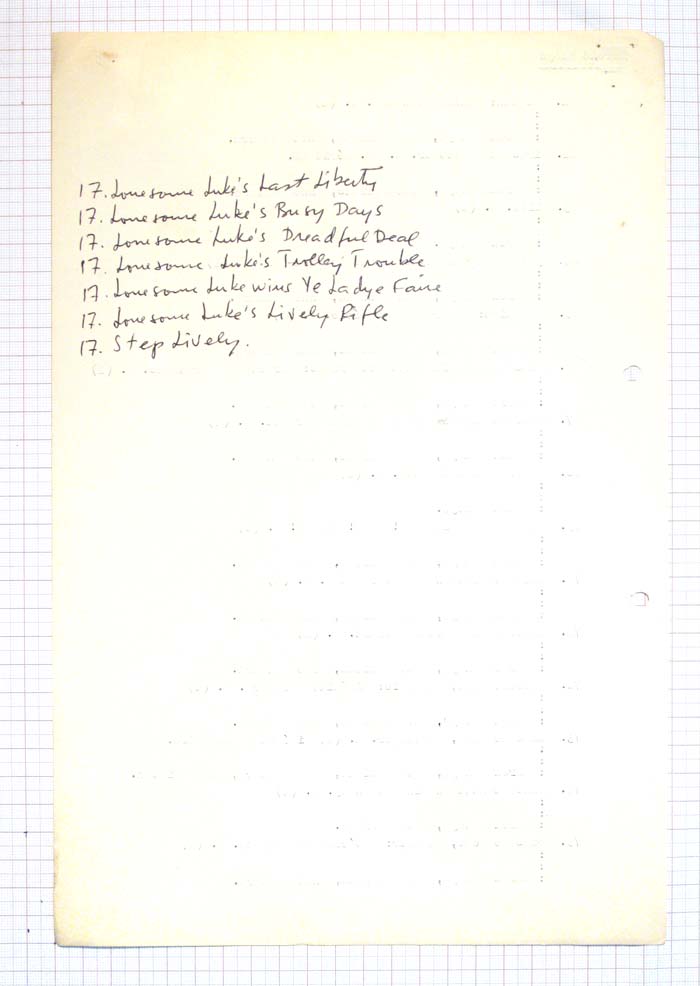 17. Lonesome Luke's Last Liberty
17. Lonesome Luke's Busy Days
17. Lonesome Luke's Dreadful Deal.
17. Lonesome Luke's Trolley Trouble
17. Lonesome Luke wins Ye Ladye Faire
17. Lonesome Luke's Lively Rifle
17. Step Lively.